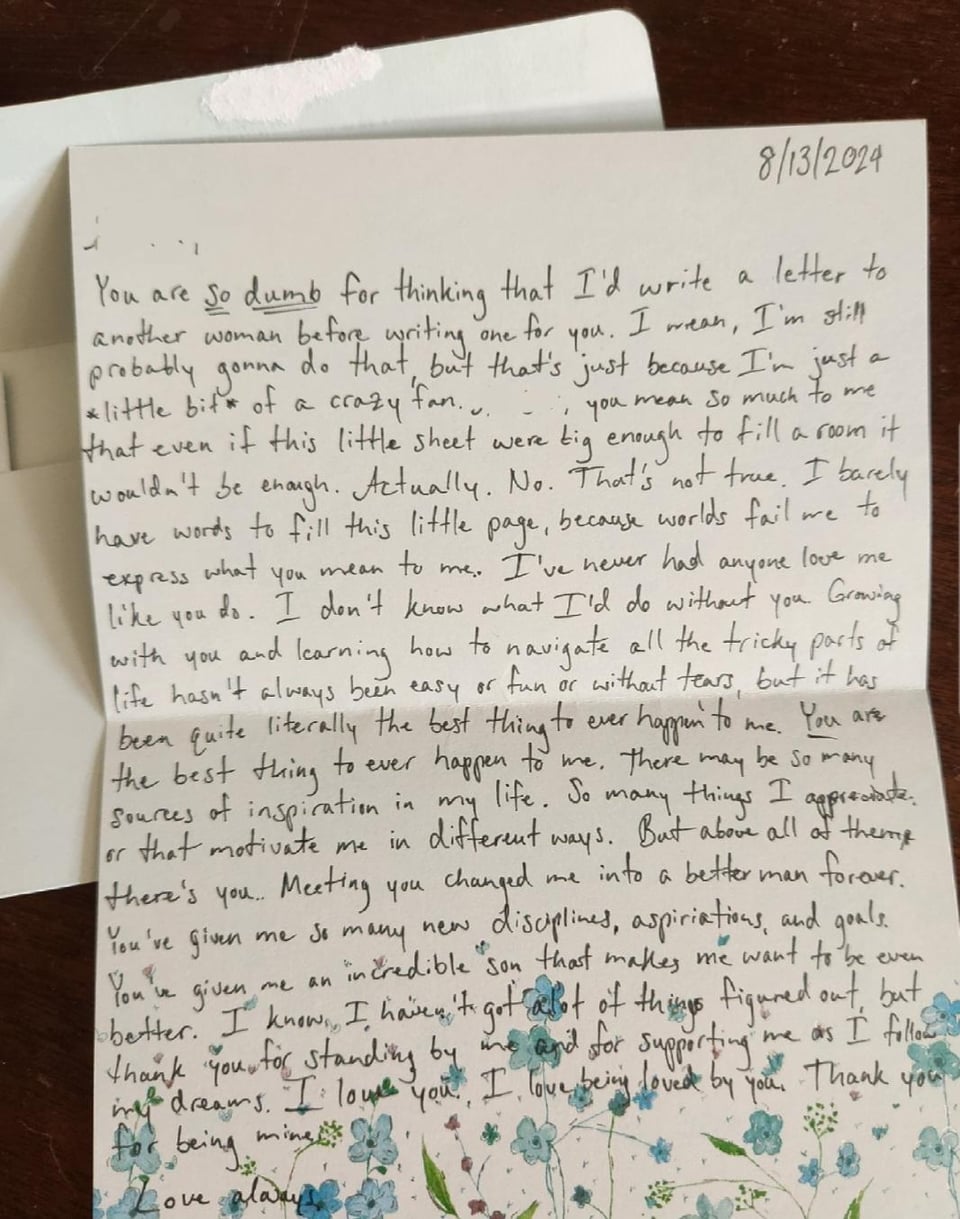 8/13/2024
You are so dumb for thinking that I'd write a letter to
another woman before writing one for you. I mean, I'm still
probably gonna do that, but that's just because I'm just a
*little bit* of a crazy fan. you mean so much to me
that even if this little sheet were big enough to fill a room it
wouldn't be enough. Actually. No. That's not true. I barely
have words to fill this little page, because worlds fail me to
express what you mean to me. I've never had anyone love me
like you do. I don't know what I'd do without you. Growing
with you and learning how to navigate all the tricky parts of
life hasn't always been easy or fun or without tears, but it has
been quite literally the best thing to ever happen to me. You are
the best thing to ever happen to me. There may be so many
sources of inspiration in my life. So many things I appreciate.
or that motivate me in different ways. But above all of them
there's you.. Meeting you changed me into a better man forever.
You've given me so many new disciplines, aspiriations, and goals.
You've given me an incredible son that makes me want to be even
better. I know, I haven't got alot of things figured out, but
thank you for standing by me and for supporting me as I follow
my dreams. I love you. I love being loved by you. Thank you
for being mine.
Love always,